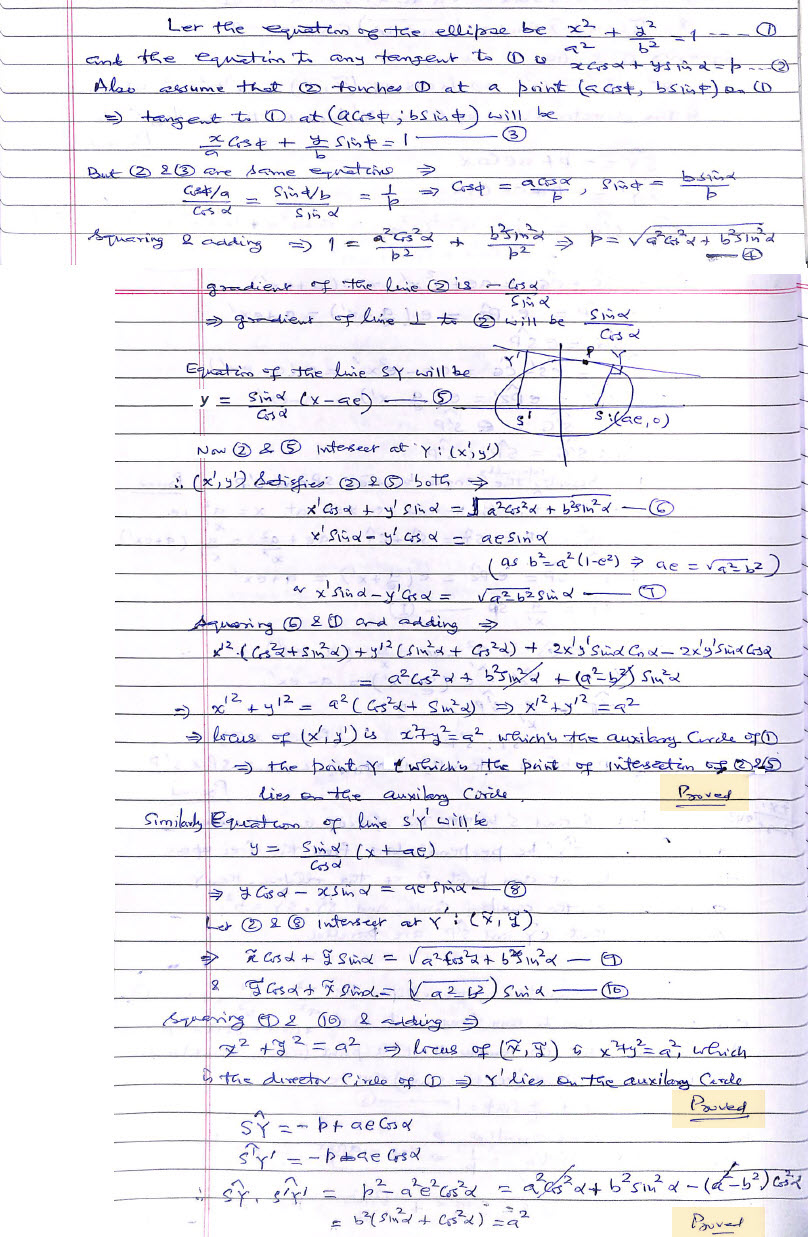 Let the equation of the ellipse be x²/a² + y²/b² = 1 ---- ①
and the equation to any tangent to ① is x cosα + y sinα = p --- ②
Also assume that ② touches ① at a point (a cosφ, b sinφ) on ①
⇒ tangent to ① at (a cosφ, b sinφ) will be
x/a cosφ + y/b sinφ = 1 ——— ③
But ② & ③ are same equations ⇒
(cosφ/a)/cosα = (sinφ/b)/sinα = 1/p ⇒ cosφ = a cosα/p, sinφ = b sinα/p
Squaring & adding ⇒ 1 = a²cos²α/p² + b²sin²α/p² ⇒ p = √(a²cos²α + b²sin²α) — ④
gradient of the line ② is - cosα/sinα
⇒ gradient of line ⊥ to ② will be sinα/cosα
Y' P Y
S' S:(ae,0)
Equation of the line SY will be
y = sinα/cosα (x-ae) —— ⑤
Now ② & ⑤ intersect at Y: (x',y')
∴ (x',y') satisfies ② & ⑤ both ⇒
x'cosα + y'sinα = √(a²cos²α + b²sin²α) — ⑥
x'sinα - y'cosα = ae sinα
(as b² = a²(1-e²) ⇒ ae = √(a²-b²))
or x'sinα - y'cosα = √(a²-b²) sinα —— ⑦
Squaring ⑥ & ⑦ and adding ⇒
x'²(cos²α + sin²α) + y'²(sin²α + cos²α) + 2x'y'sinα cosα - 2x'y'sinα cosα
= a²cos²α + b²sin²α + (a²-b²) sin²α
⇒ x'² + y'² = a²(cos²α + sin²α) ⇒ x'² + y'² = a²
⇒ locus of (x',y') is x²+y²=a² which is the auxilary Circle of ①
⇒ the point Y (which is the point of intersection of ② & ⑤
lies on the auxilary Circle.
Proved
Similarly Equation of line S'Y' will be
y = sinα/cosα (x+ae)
⇒ y cosα - x sinα = ae sinα — ⑧
Let ② & ⑧ intersect at Y': (x̃, ỹ)
⇒ x̃ cosα + ỹ sinα = √(a²cos²α + b²sin²α) — ⑨
& ỹ cosα + x̃ sinα = √(a²-b²) sinα —— ⑩
Squaring ⑨ & ⑩ & adding ⇒
x̃² + ỹ² = a² ⇒ locus of (x̃, ỹ) is x²+y²=a², which
is the director Circle of ① ⇒ Y' lies on the auxilary Circle
Proved
SY = -p + ae cosα
S'Y' = -p - ae cosα
∴ SY. S'Y' = p² - a²e²cos²α = a²cos²α + b²sin²α - (a²-b²) cos²α
= b²(sin²α + cos²α) = a²
Proved